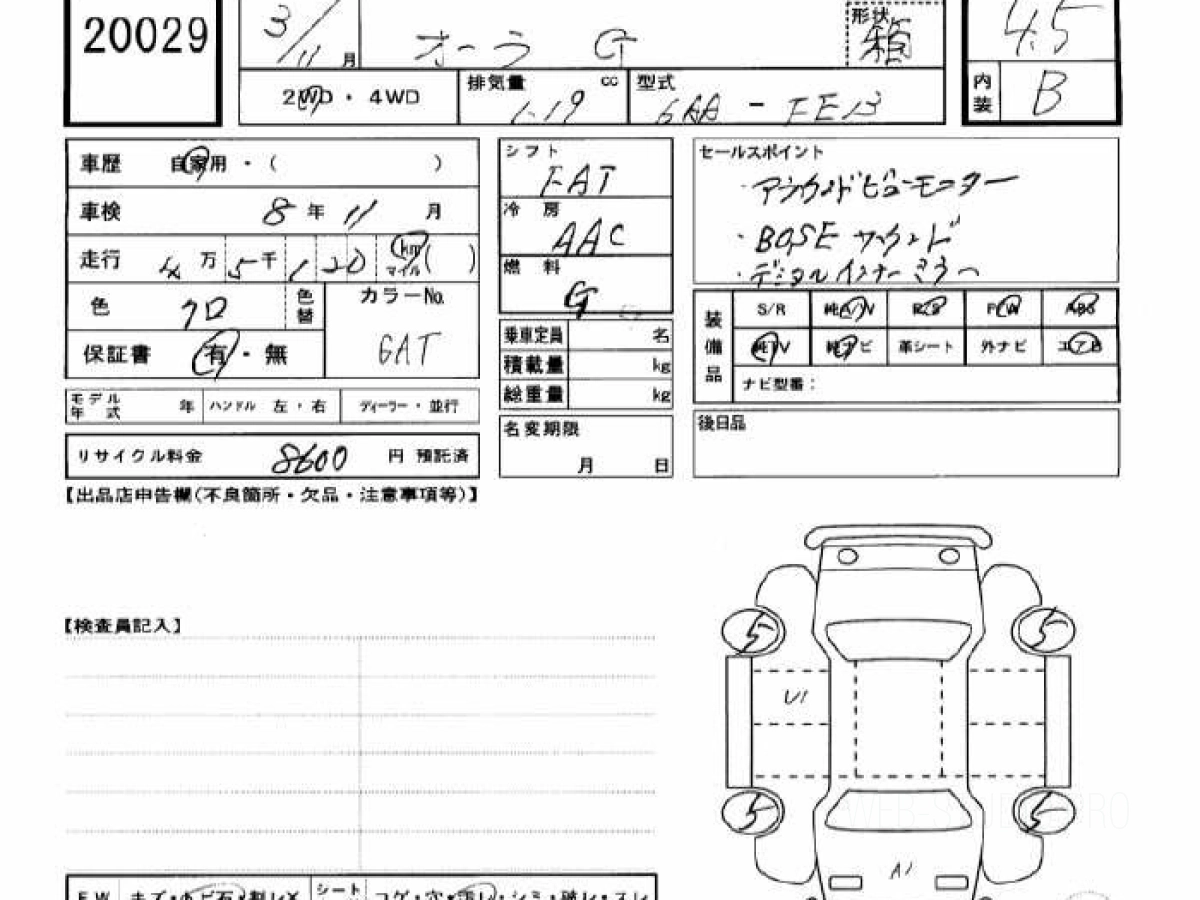 20029
3/11月
オーラ G
形状 箱
4.5
2WD・4WD
排気量 cc 1.19
型式 6AA-FE13
内装 B
車歴 自家用・( )
車検 8年11月
走行 4万5千120 km マイル ( )
色 クロ 色替
カラーNo. GAT
保証書 有・無
モデル年式 年 ハンドル 左・右 ディーラー・並行
リサイクル料金 8600 円 預託済
シフト FAT
冷房 AAC
燃料 G
乗車定員 名
積載量 kg
総重量 kg
名変期限 月 日
セールスポイント
・アラウンドビューモニター
・BOSE サウンド
・デジタルインナーミラー
装備品
S/R 純A/V P/S P/W ABS
純TV 純ナビ 革シート 外ナビ エアB
ナビ型番:
後日品
【出品店申告欄(不良箇所・欠品・注意事項等)】
【検査員記入】
5 5
U1
5 5
A1
F.W キズ・トビ石・割レX シート コゲ・穴・汚レ・シミ・破レ・スレ